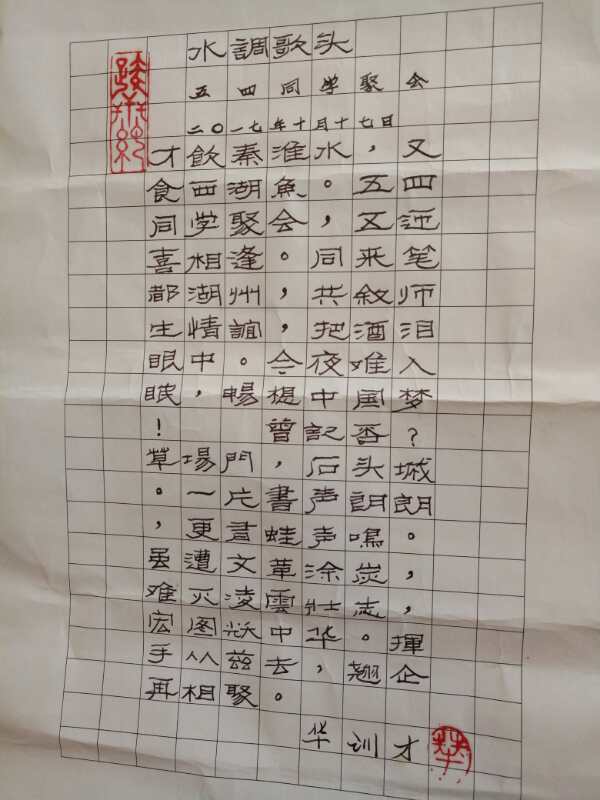 水調歌头
五四同学聚会
二〇一七年十月十七日
才飲秦淮水，又
食西湖魚。五四
同学聚会，又迓
喜相逢。同来笔
都湖州，共敘师
生情誼，把酒泪
眼中。今夜难入
眠，暢想中国梦
！曾記否？
草場門，石头城
。一片書声朗朗
，更書蛙声鳴。
虽遭文革涂炭，
难灭凌雲壮志，
宏图中华。揮
手从兹去，翘企
再相聚。
华训才